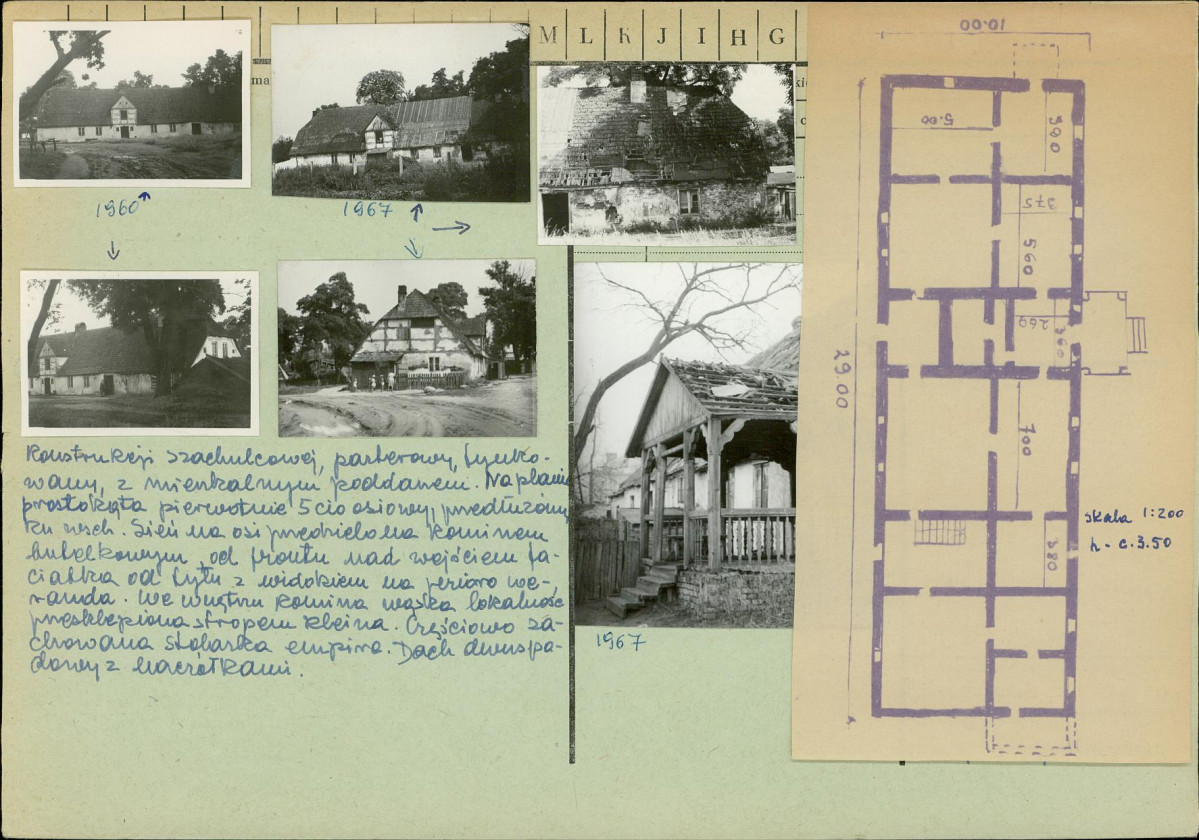 M L K J I H G
ma
1960
1967
Konstrukcji szachulcowej, parterowy, tynko-
wany, z mieszkalnym poddaszem. Na planie
prostokąta pierwotnie 5cio osiowy, przedłużony
ku wsch. Sień na osi przedzielona kominem
butelkowym, od frontu nad wejściem fa-
ciatka od tyłu z widokiem na jezioro we-
randa. We wnętrzu komina wąska lokalność
przesklepiona stropem kleina. Częściowo za-
chowana stolarka empire. Dach dwuspa-
dowy z naczółkami.
1967
10.00
5.00
390
375
560
260
360
29.00
700
380
skala 1:200
h - c. 3.50